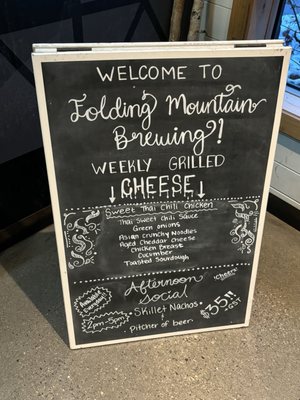 WELCOME TO
Folding Mountain
Brewing?!
WEEKLY GRILLED
CHEESE
Sweet Thai Chili Chicken
Thai Sweet Chili Sauce
Green onions
Asian Crunchy Noodles
Aged Cheddar Cheese
Chicken Breast
Cucumber
Toasted Sourdough
Afternoon
Social
Available
Everyday!
2pm-5pm
• Skillet Nachos •
+
Pitcher of beer
(cheers!)
$35!!
+GST